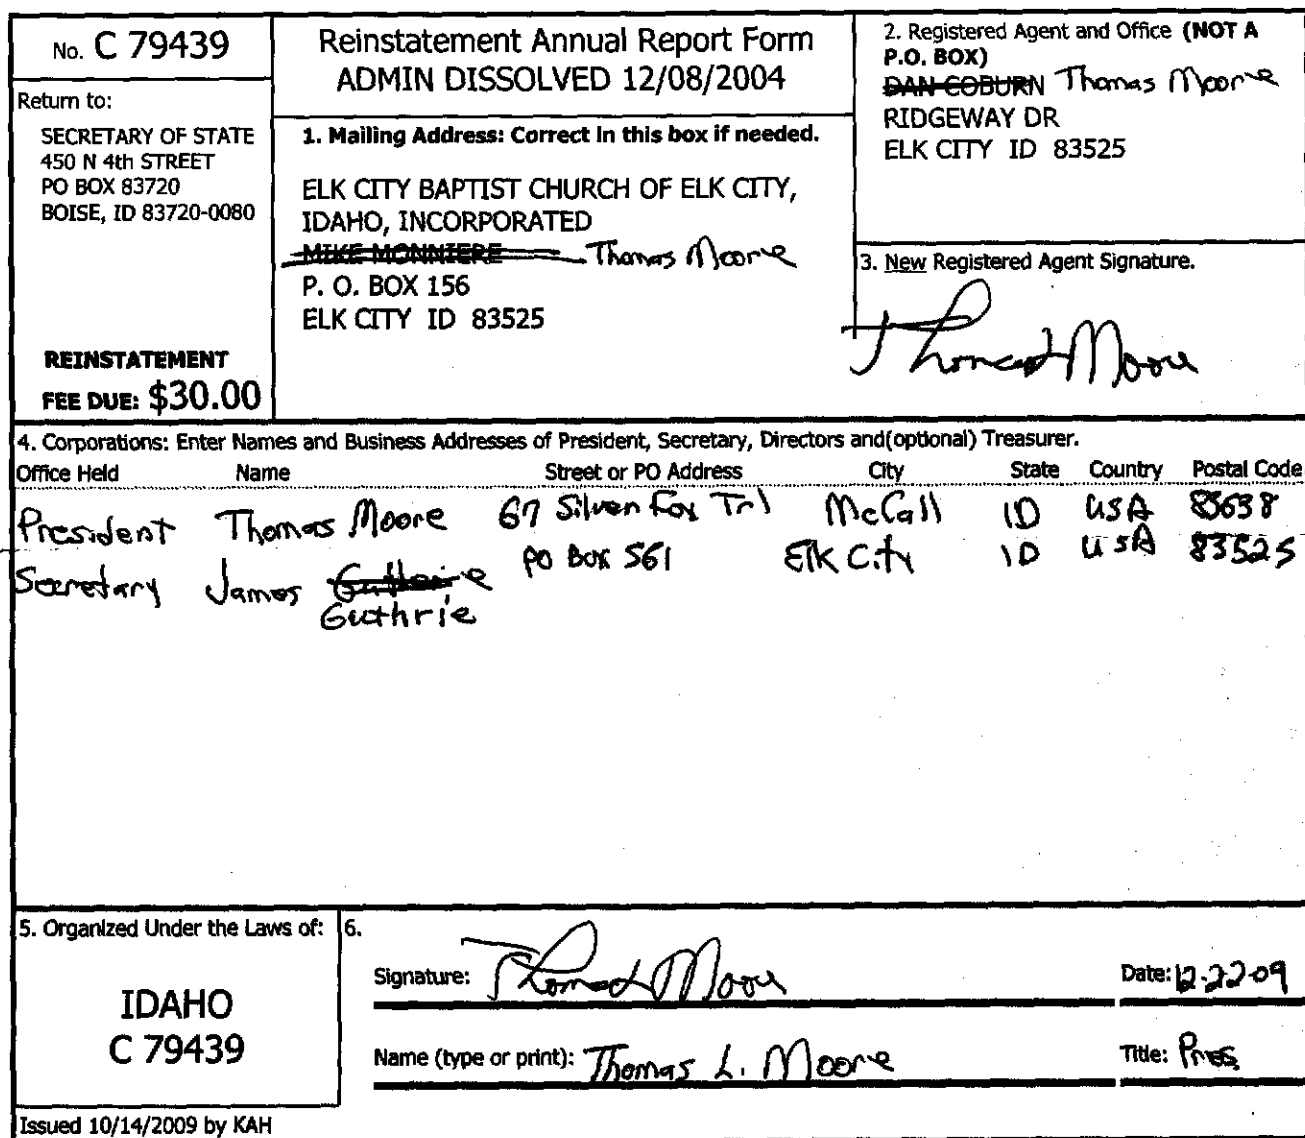 No. C 79439
Return to:
SECRETARY OF STATE
450 N 4th STREET
PO BOX 83720
BOISE, ID 83720-0080
REINSTATEMENT
FEE DUE: $30.00
Reinstatement Annual Report Form
ADMIN DISSOLVED 12/08/2004
1. Mailing Address: Correct in this box if needed.
ELK CITY BAPTIST CHURCH OF ELK CITY,
IDAHO, INCORPORATED
MIKE MONNIERE Thomas Moore
P. O. BOX 156
ELK CITY ID 83525
2. Registered Agent and Office (NOT A
P.O. BOX)
DAN COBURN Thomas Moore
RIDGEWAY DR
ELK CITY ID 83525
3. New Registered Agent Signature.
Thomas Moore
4. Corporations: Enter Names and Business Addresses of President, Secretary, Directors and(optional) Treasurer.
Office Held Name Street or PO Address City State Country Postal Code
President Thomas Moore 67 Silver Fox Trl McCall ID USA 83638
Secretary James Guthrie PO Box 561 Elk City ID USA 83525
Guthrie
5. Organized Under the Laws of:
IDAHO
C 79439
6.
Signature: Thomas Moore Date: 12-22-09
Name (type or print): Thomas L. Moore Title: Pres.
Issued 10/14/2009 by KAH